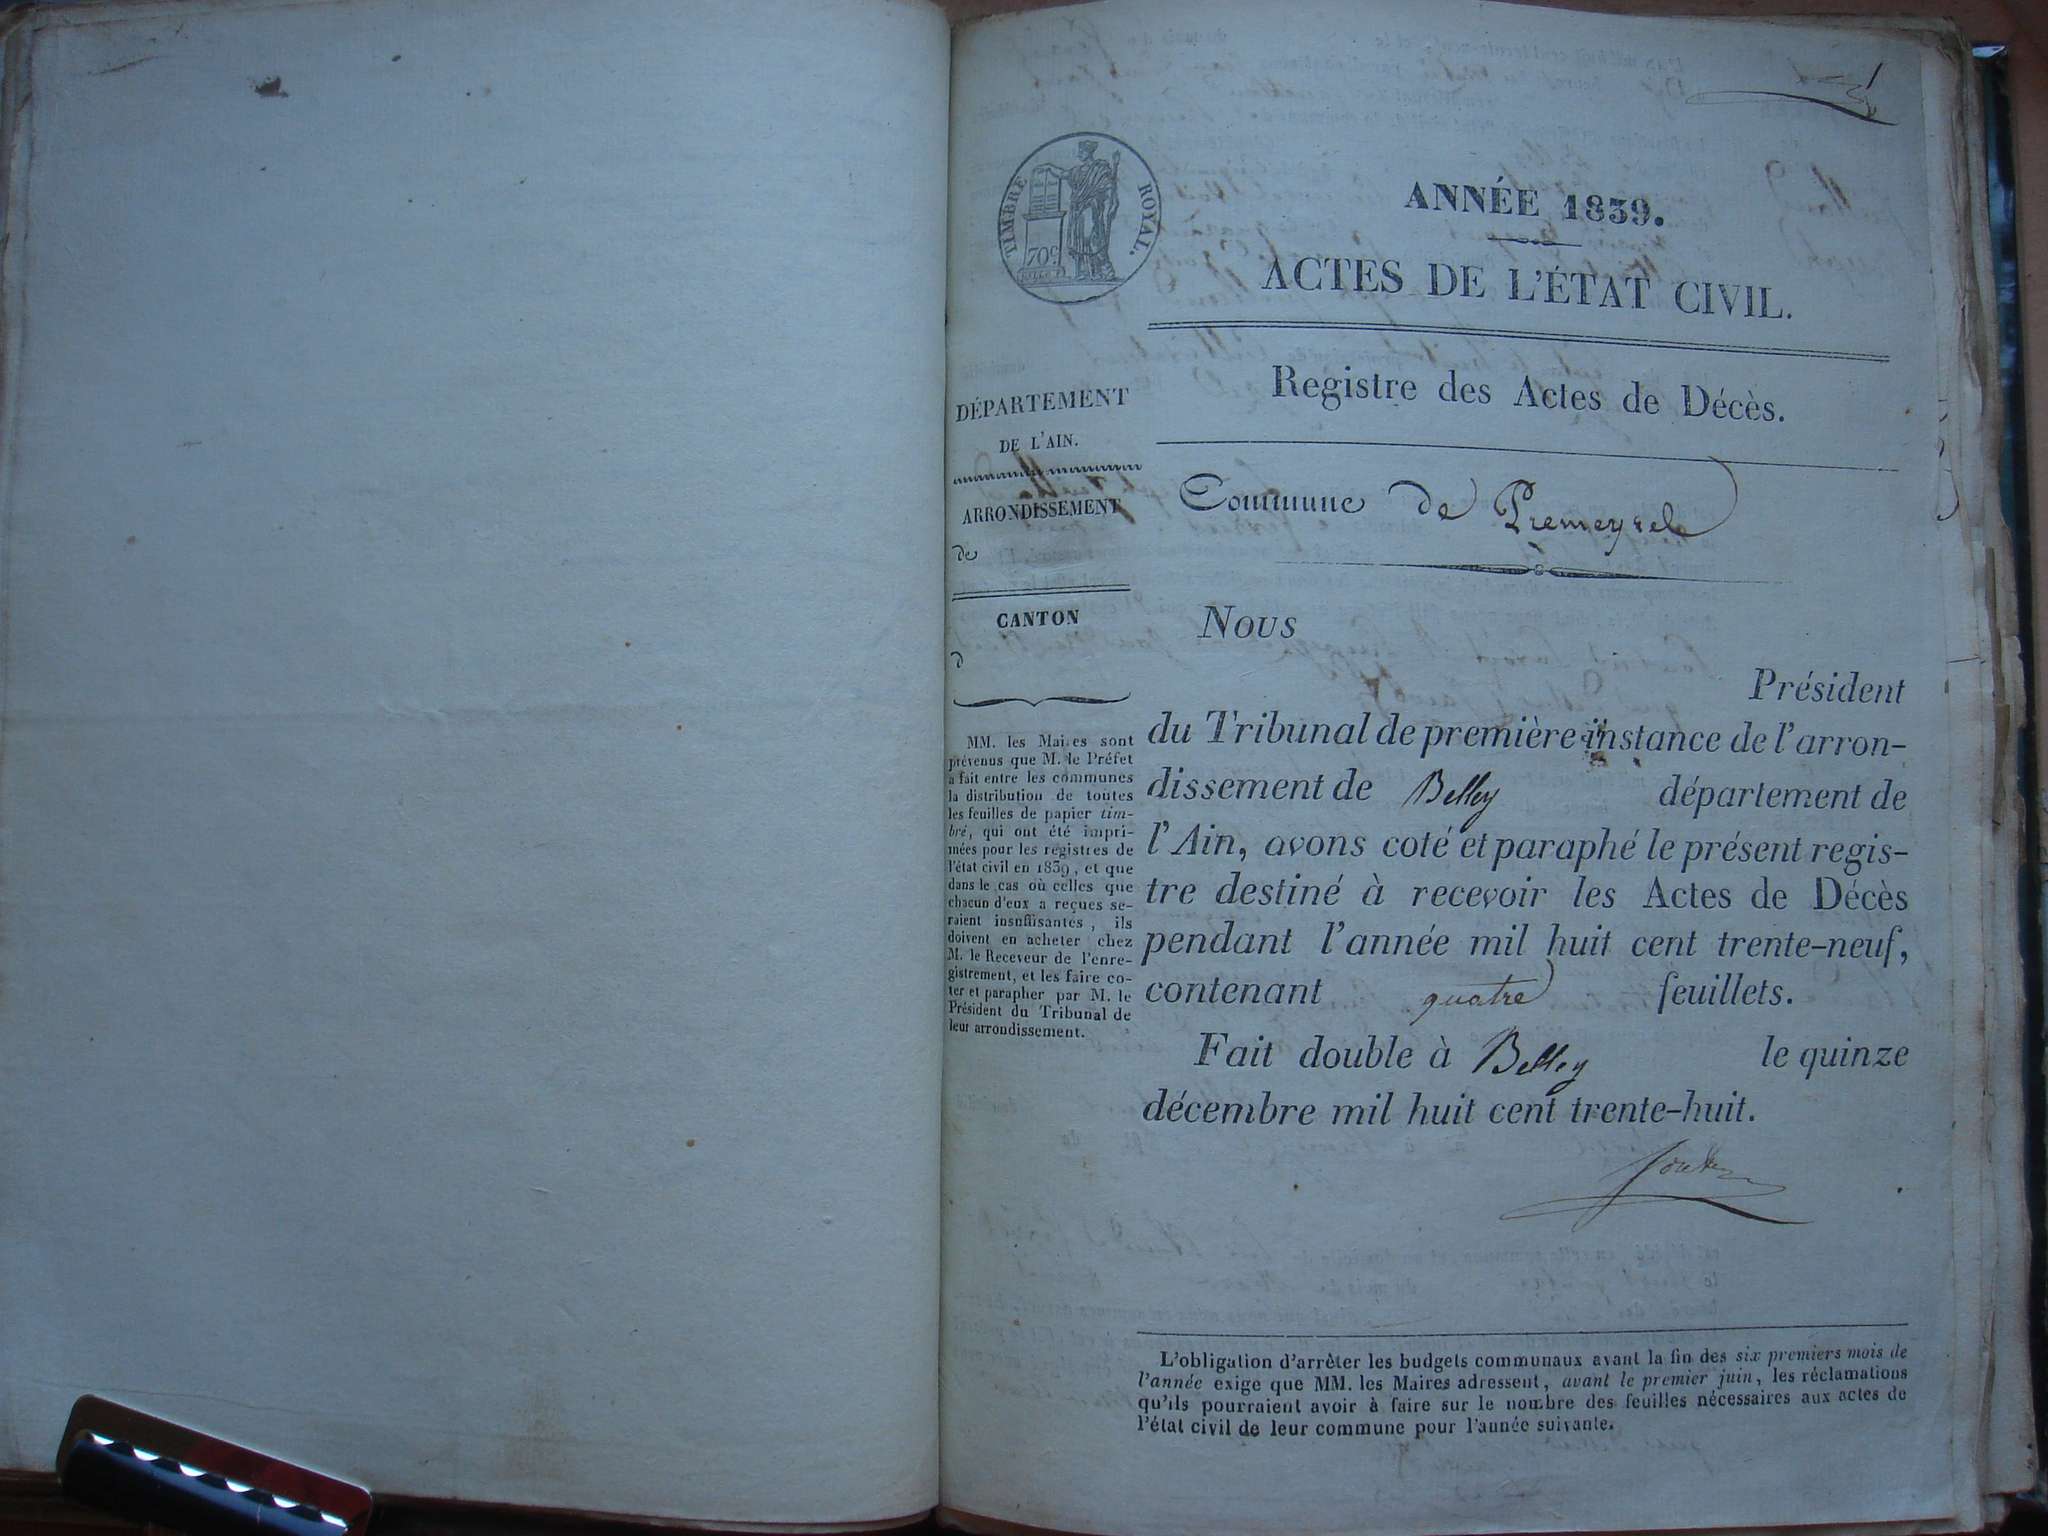 TIMBRE ROYAL.
70c
ANNÉE 1839.
ACTES DE L'ÉTAT CIVIL.
Registre des Actes de Décès.
DÉPARTEMENT
DE L'AIN.
ARRONDISSEMENT
de
CANTON
d
MM. les Maires sont
prévenus que M. le Préfet
a fait entre les communes
la distribution de toutes
les feuilles de papier tim-
bré, qui ont été impri-
mées pour les registres de
l'état civil en 1839, et que
dans le cas où celles que
chacun d'eux a reçues se-
raient insuffisantes, ils
doivent en acheter chez
M. le Receveur de l'enre-
gistrement, et les faire co-
ter et parapher par M. le
Président du Tribunal de
leur arrondissement.
Commune de Premeyzel
Nous
Président
du Tribunal de première instance de l'arron-
dissement de Belley département de
l'Ain, avons coté et paraphé le présent regis-
tre destiné à recevoir les Actes de Décès
pendant l'année mil huit cent trente-neuf,
contenant quatre feuillets.
Fait double à Belley le quinze
décembre mil huit cent trente-huit.
L'obligation d'arrêter les budgets communaux avant la fin des six premiers mois de
l'année exige que MM. les Maires adressent, avant le premier juin, les réclamations
qu'ils pourraient avoir à faire sur le nombre des feuilles nécessaires aux actes de
l'état civil de leur commune pour l'année suivante.